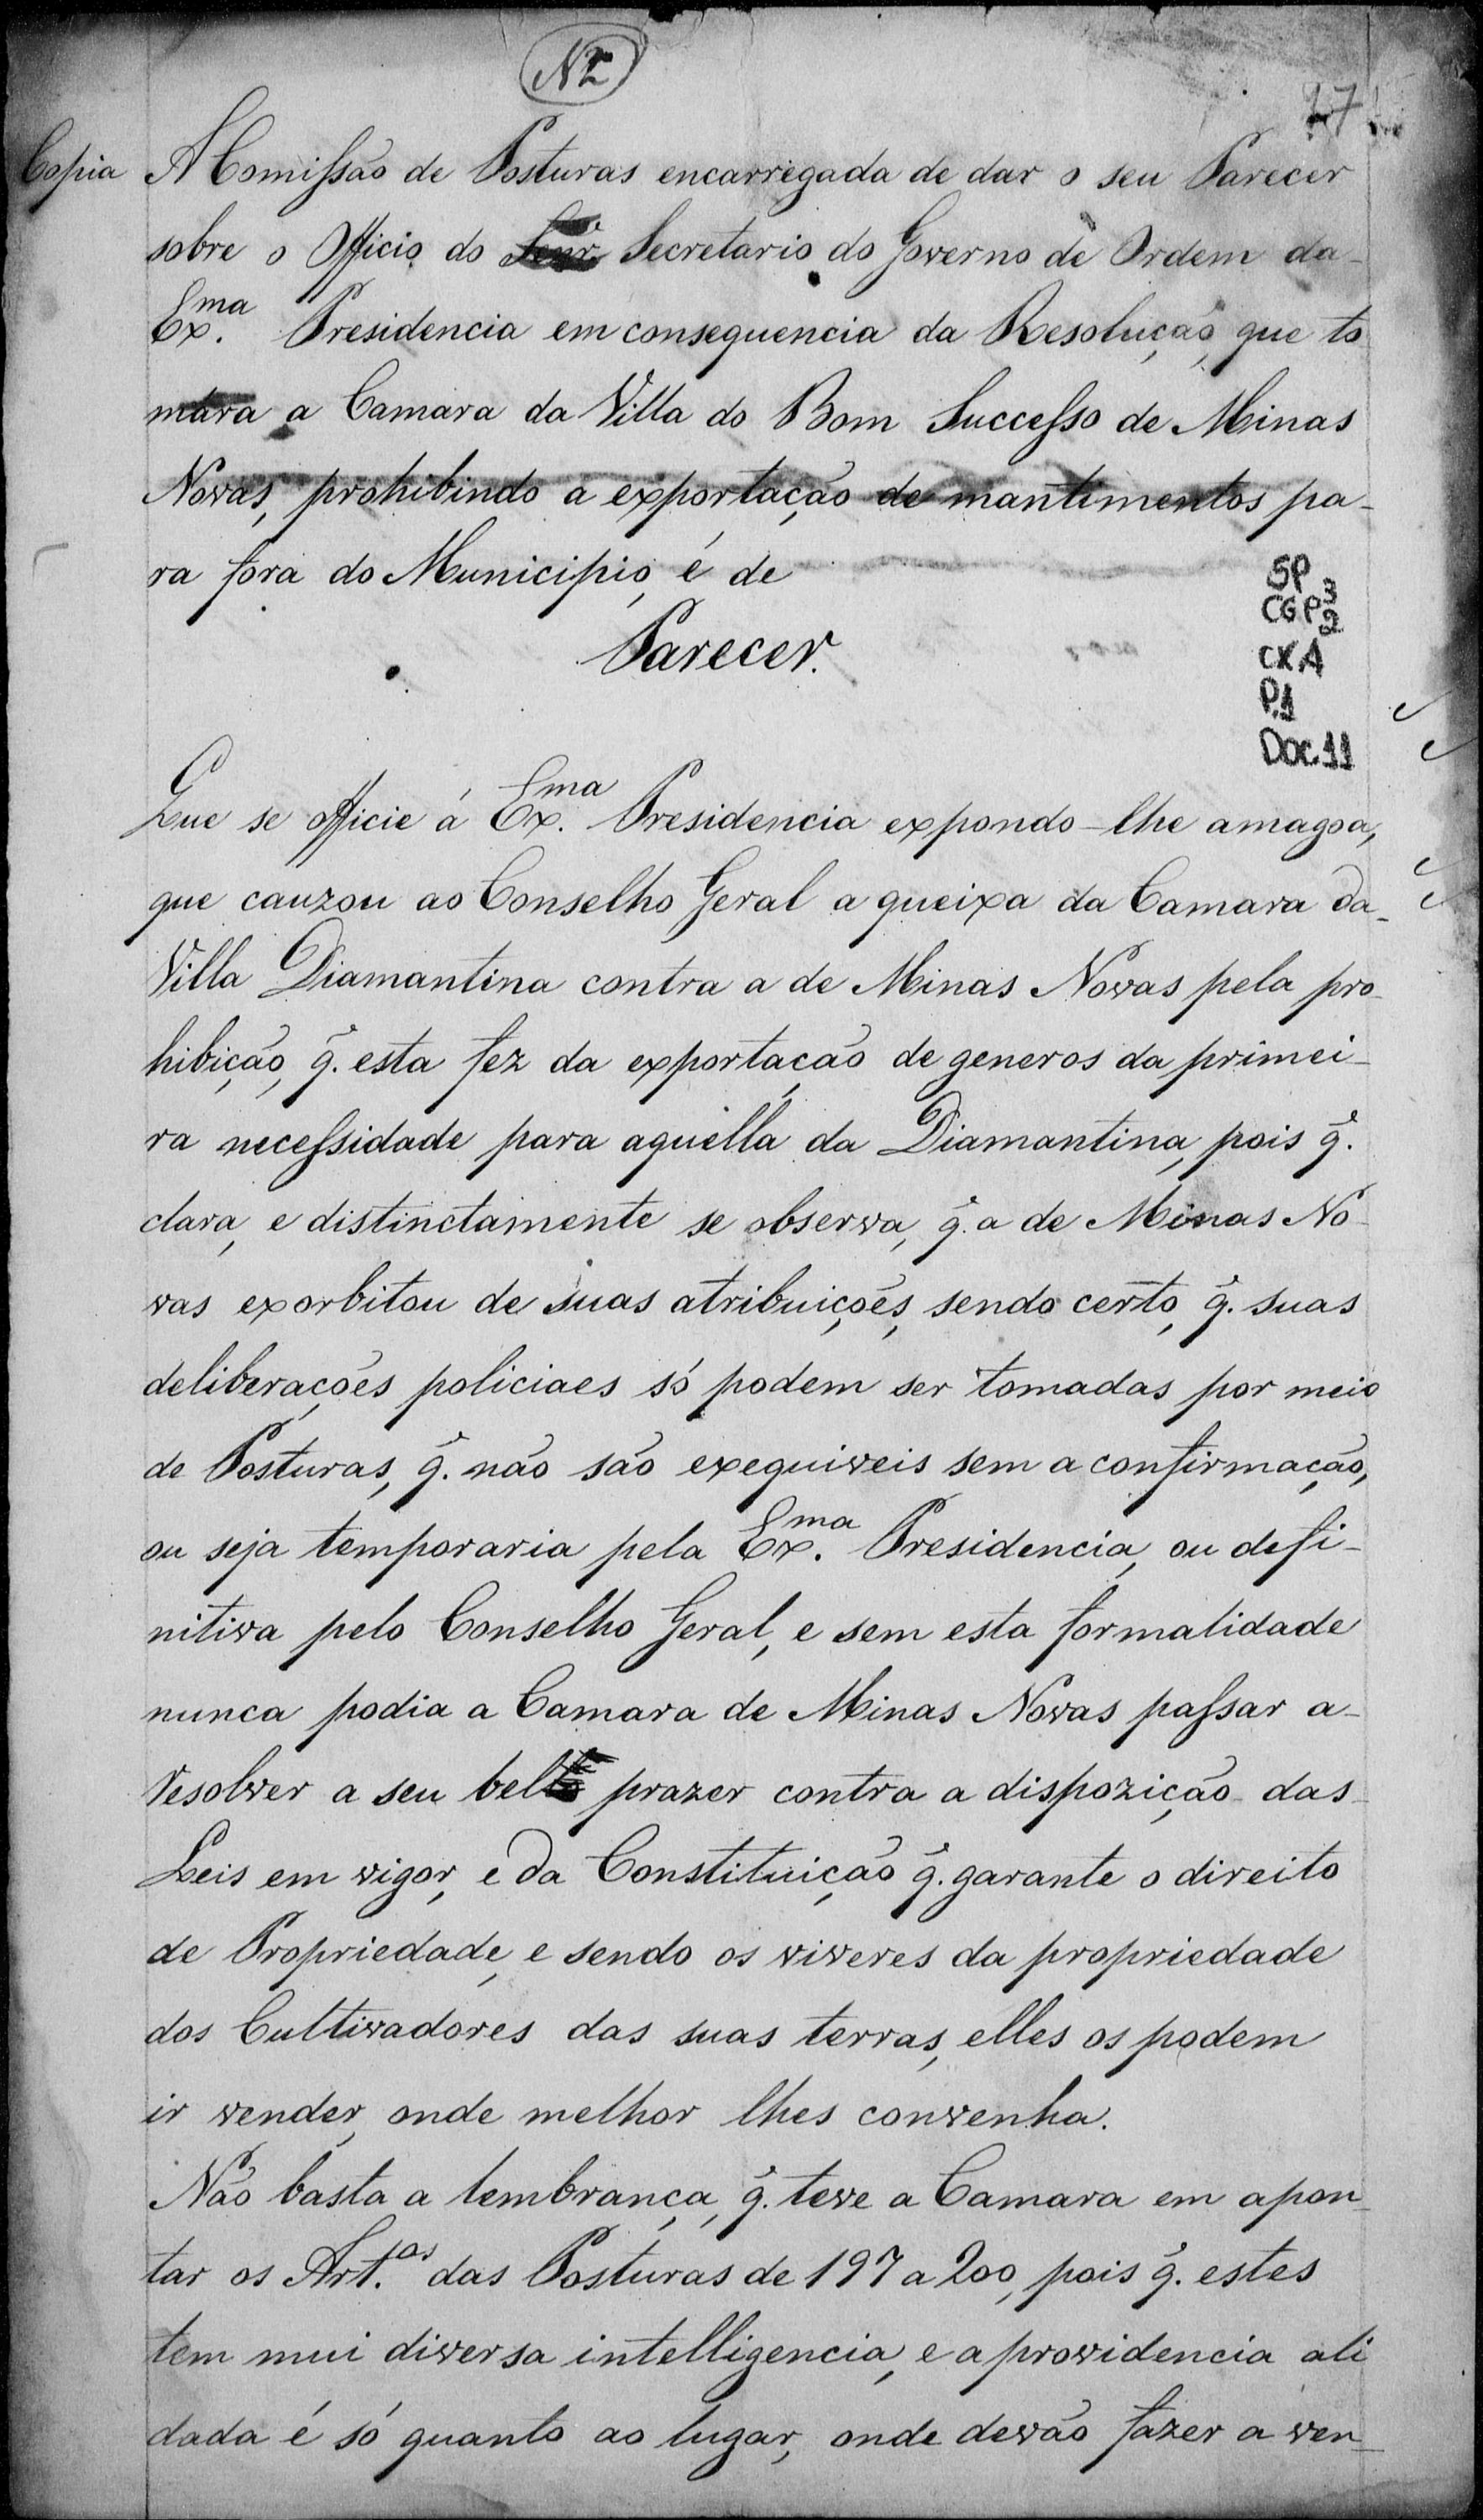 N2
Copia A Comissão de Posturas encarregada de dar o seu Parecer
sobre o Officio do Secretario do Governo de Ordem da
Ex.ma Presidencia em consequencia da Resolução, que to
mára a Camara da Villa do Bom Successo de Minas
Novas, prohibindo a exportação de mantimentos pa-
ra fora do Municipio, é de
Parecer.
SP
CGP 3
2
CX.4
P.1
Doc.11
Que se officie á Ex.ma Presidencia expondo-lhe a magoa,
que cauzou ao Conselho Geral a queixa da Camara da
Villa Diamantina contra a de Minas Novas pela pro-
hibição, q̃. esta fez da exportação de generos da primei-
ra necessidade para aquella da Diamantina, pois q̃.
clara, e distinctamente se observa, q̃. a de Minas No-
vas exorbitou de suas atribuições, sendo certo, q̃. suas
deliberações policiaes só podem ser tomadas por meio
de Posturas, q̃. não são exequiveis sem a confirmação,
ou seja temporaria pela Ex.ma Presidencia, ou defi-
nitiva pelo Conselho Geral, e sem esta formalidade
nunca podia a Camara de Minas Novas passar a
resolver a seu bel prazer contra a dispozição das
Leis em vigor, e da Constituição q̃. garante o direito
de Propriedade, e sendo os viveres da propriedade
dos Cultivadores das suas terras, elles os podem
ir vender, onde melhor lhes convenha.
Não basta a lembrança, q̃. teve a Camara em apon-
tar os Art.os das Posturas de 197 a 200, pois q̃. estes
tem mui diversa intelligencia, e a providencia ali
dada é só quanto ao lugar, onde devão fazer a ven-